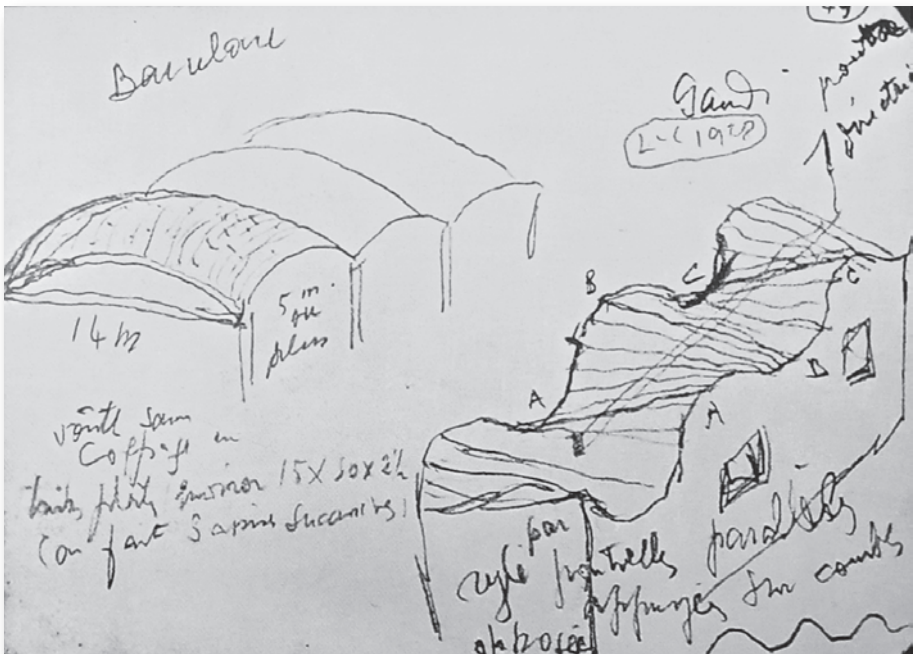 Barcelone
Gaudi
L-C 1928
poutre
directrice
B
C
C
5 m.
ou
plus
14 m
B
A
A
voûte sans
Coffrage en
plates environ 15 x 30 x 2½
(on fait 3 successives)
par
réglé poutrelles parallèles
appuyées sur courbes
opposées